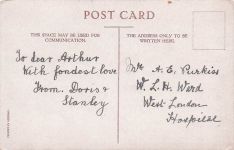 POST CARD
THIS SPACE MAY BE USED FOR
COMMUNICATION.
THE ADDRESS ONLY TO BE
WRITTEN HERE.
To dear Arthur
With fondest love
From. Doris &
Stanley
Mr A. E. Purkiss
W. L. H. Ward
West London
Hospital